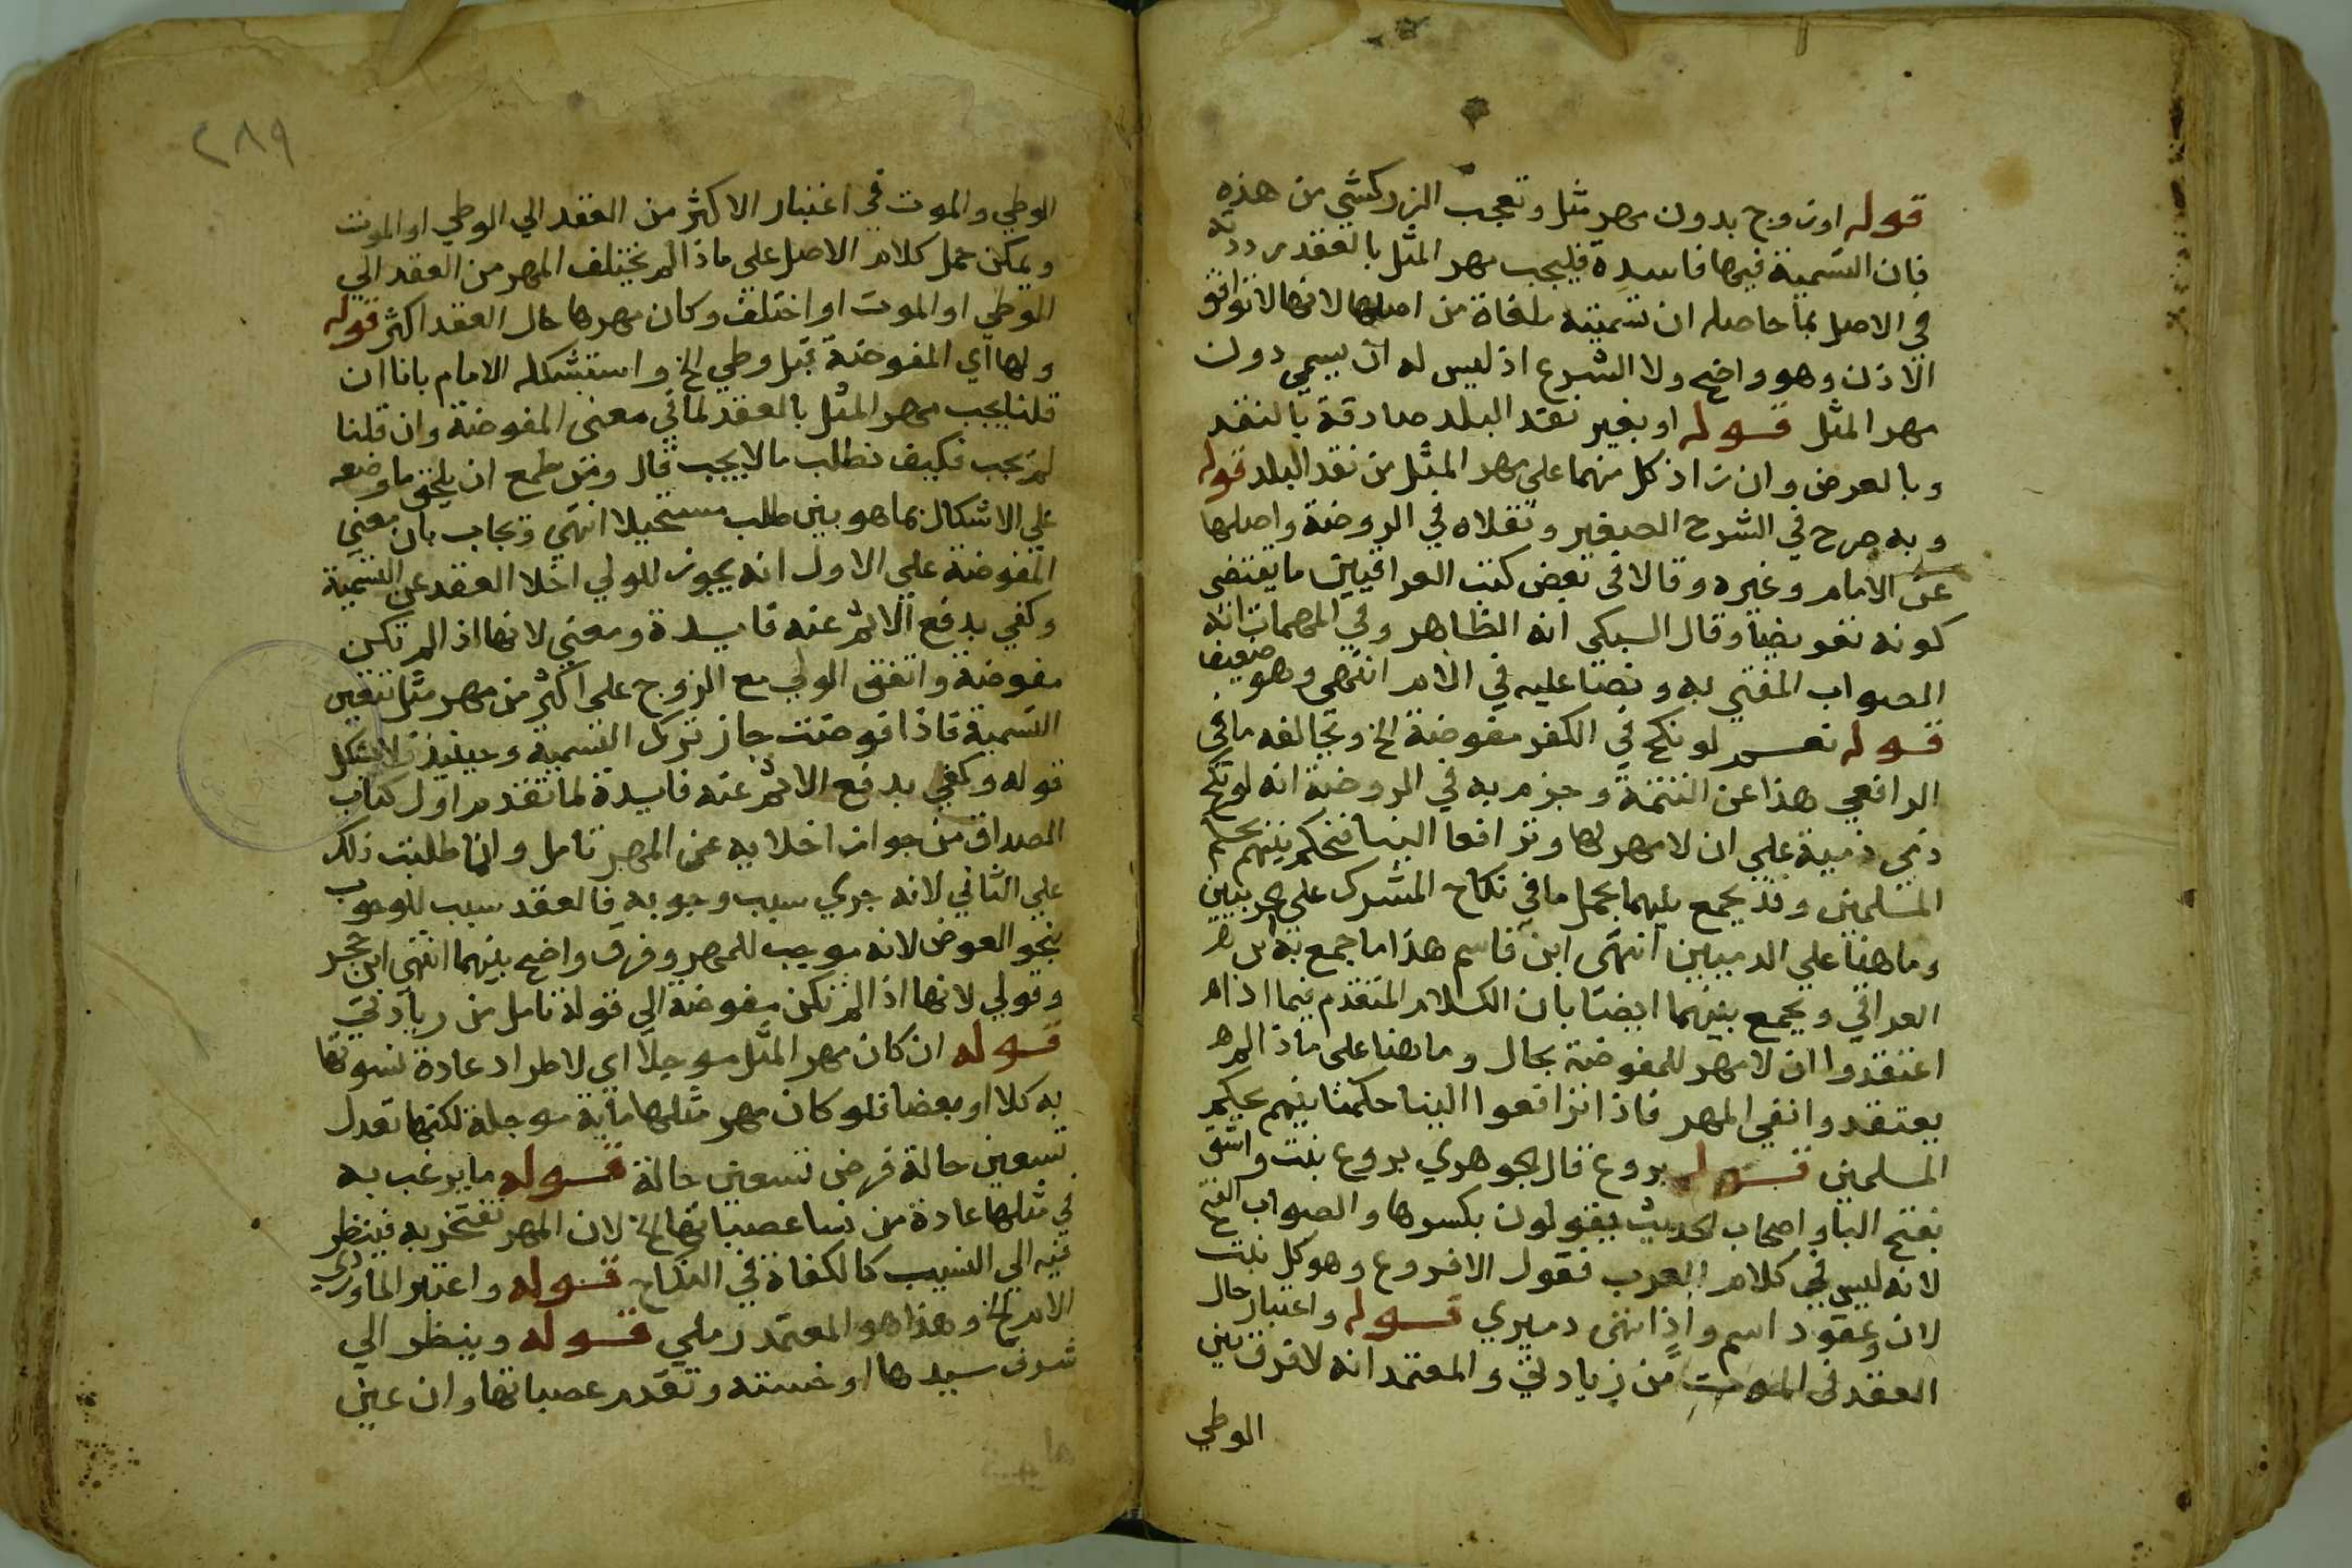 قوله او زوج بدون مهر مثل وتعجب الزركشي من هذه
فان التسمية فيها فاسدة فليجب مهر المثل بالعقد رددته
في الاصل بما حاصله ان تسميته ملغاة من اصلها لانها لا توافق
الاذن وهو واضح ولا الشرع اذ ليس له ان يسمي دون
مهر المثل قوله او بغير نقد البلد صادقة بالنقد
وبالعرض وان زاد كل منهما على مهر المثل من نقد البلد قوله
وبه صرح في الشرح الصغير ونقلاه في الروضة واصلها
عن الامام وغيره وقالا في بعض كتب العراقيين ما يقتضى
كونه تفويضا وقال السبكى انه الظاهر وفي المهمات انه
الصواب المفتى به ونصا عليه في الام انتهى وهو ضعيف
قوله نعم لو نكح في الكفر مفوضة الخ ويخالفه ما في
الرافعي هذا عن التتمة وجزم به في الروضة انه لو نكح
ذمي ذمية علي ان لا مهر لها وترافعا الينا فنحكم بينهم بحكم
المسلمين وقد يجمع بينهما بحمل ما في نكاح المشرك على الحربيين
وما هنا علي الذميين انتهى ابن قاسم هذا ما جمع به
العراقي ويجمع بينهما ايضا بان الكلام المتقدم فيما اذا
اعتقدوا ان لا مهر للمفوضة بحال وما هنا على ما اذا لم
يعتقدوا نفي المهر فاذا ترافعوا الينا حكمنا بينهم بحكم
المسلمين قوله بروع قال الجوهري بروع بنت واشق
بفتح البا واصحاب الحديث يقولون بكسرها والصواب الفتح
لانه ليس في كلام العرب فعول الا خروع وهو كل نبت
لان وعقود اسم واد انتهى دميري قوله واعتبار حال
العقد في الموت من زيادتي والمعتمد انه لا فرق بين
الوطي
٢٨٩
الوطي والموت في اعتبار الاكثر من العقد الي الوطي او الموت
ويمكن حمل كلام الاصل علي ما اذا لم يختلف المهر من العقد الي
الوطي او الموت او اختلف وكان مهرها حال العقد اكثر قوله
ولها اي المفوضة قبل وطي الخ واستشكله الامام بانا ان
قلنا يجب مهر المثل بالعقد فما في معنى المفوضة وان قلنا
لم يجب فكيف تطلب ما لا يجب قال ومن طمع ان يلحق ما وضعه
علي الاشكال بما هو بين طلب مستحيلا انتهي ويجاب بان معنى
المفوضة علي الاول انه يجوز للولي اخلا العقد عن التسمية
وكفي بدفع الاثم عنه فايدة ومعني لانها اذا لم تكن
مفوضة واتفق الولي مع الزوج على اكثر من مهر مثل تتعين
التسمية فاذا فوضت جاز ترك التسمية وحينيذ فلا يشكل
قوله وكفي بدفع الاثم عنه فايدة لما تقدم اول كتاب
الصداق من جواز اخلايه عن المهر تامل وانما طلبت ذلك
علي الثاني لانه جري سبب وجوبه فالعقد سبب للوجوب
بنحو العوض لانه موجب للمهر وفرق واضح بينهما انتهي ابن حجر
وقولي لانها اذا لم تكن مفوضة الي قوله تامل من زيادتي
قوله ان كان مهر المثل موجلا اي لاطراد عادة نسوتها
به كلا او بعضا فلو كان مهر مثلها ماية موجلة لكنها تعدل
تسعين حالة فرض تسعين حالة قوله ما يرغب به
في مثلها عادة من نسا عصباتها الخ لان المهر تفتخر به فينظر
فيه الي النسب كالكفاة في النكاح قوله واعتبر الماوردي
الام الخ وهذا هو المعتمد رملي قوله وينظر الي
شرف سيدها او خسته وتقدم عصباتها وان غبن